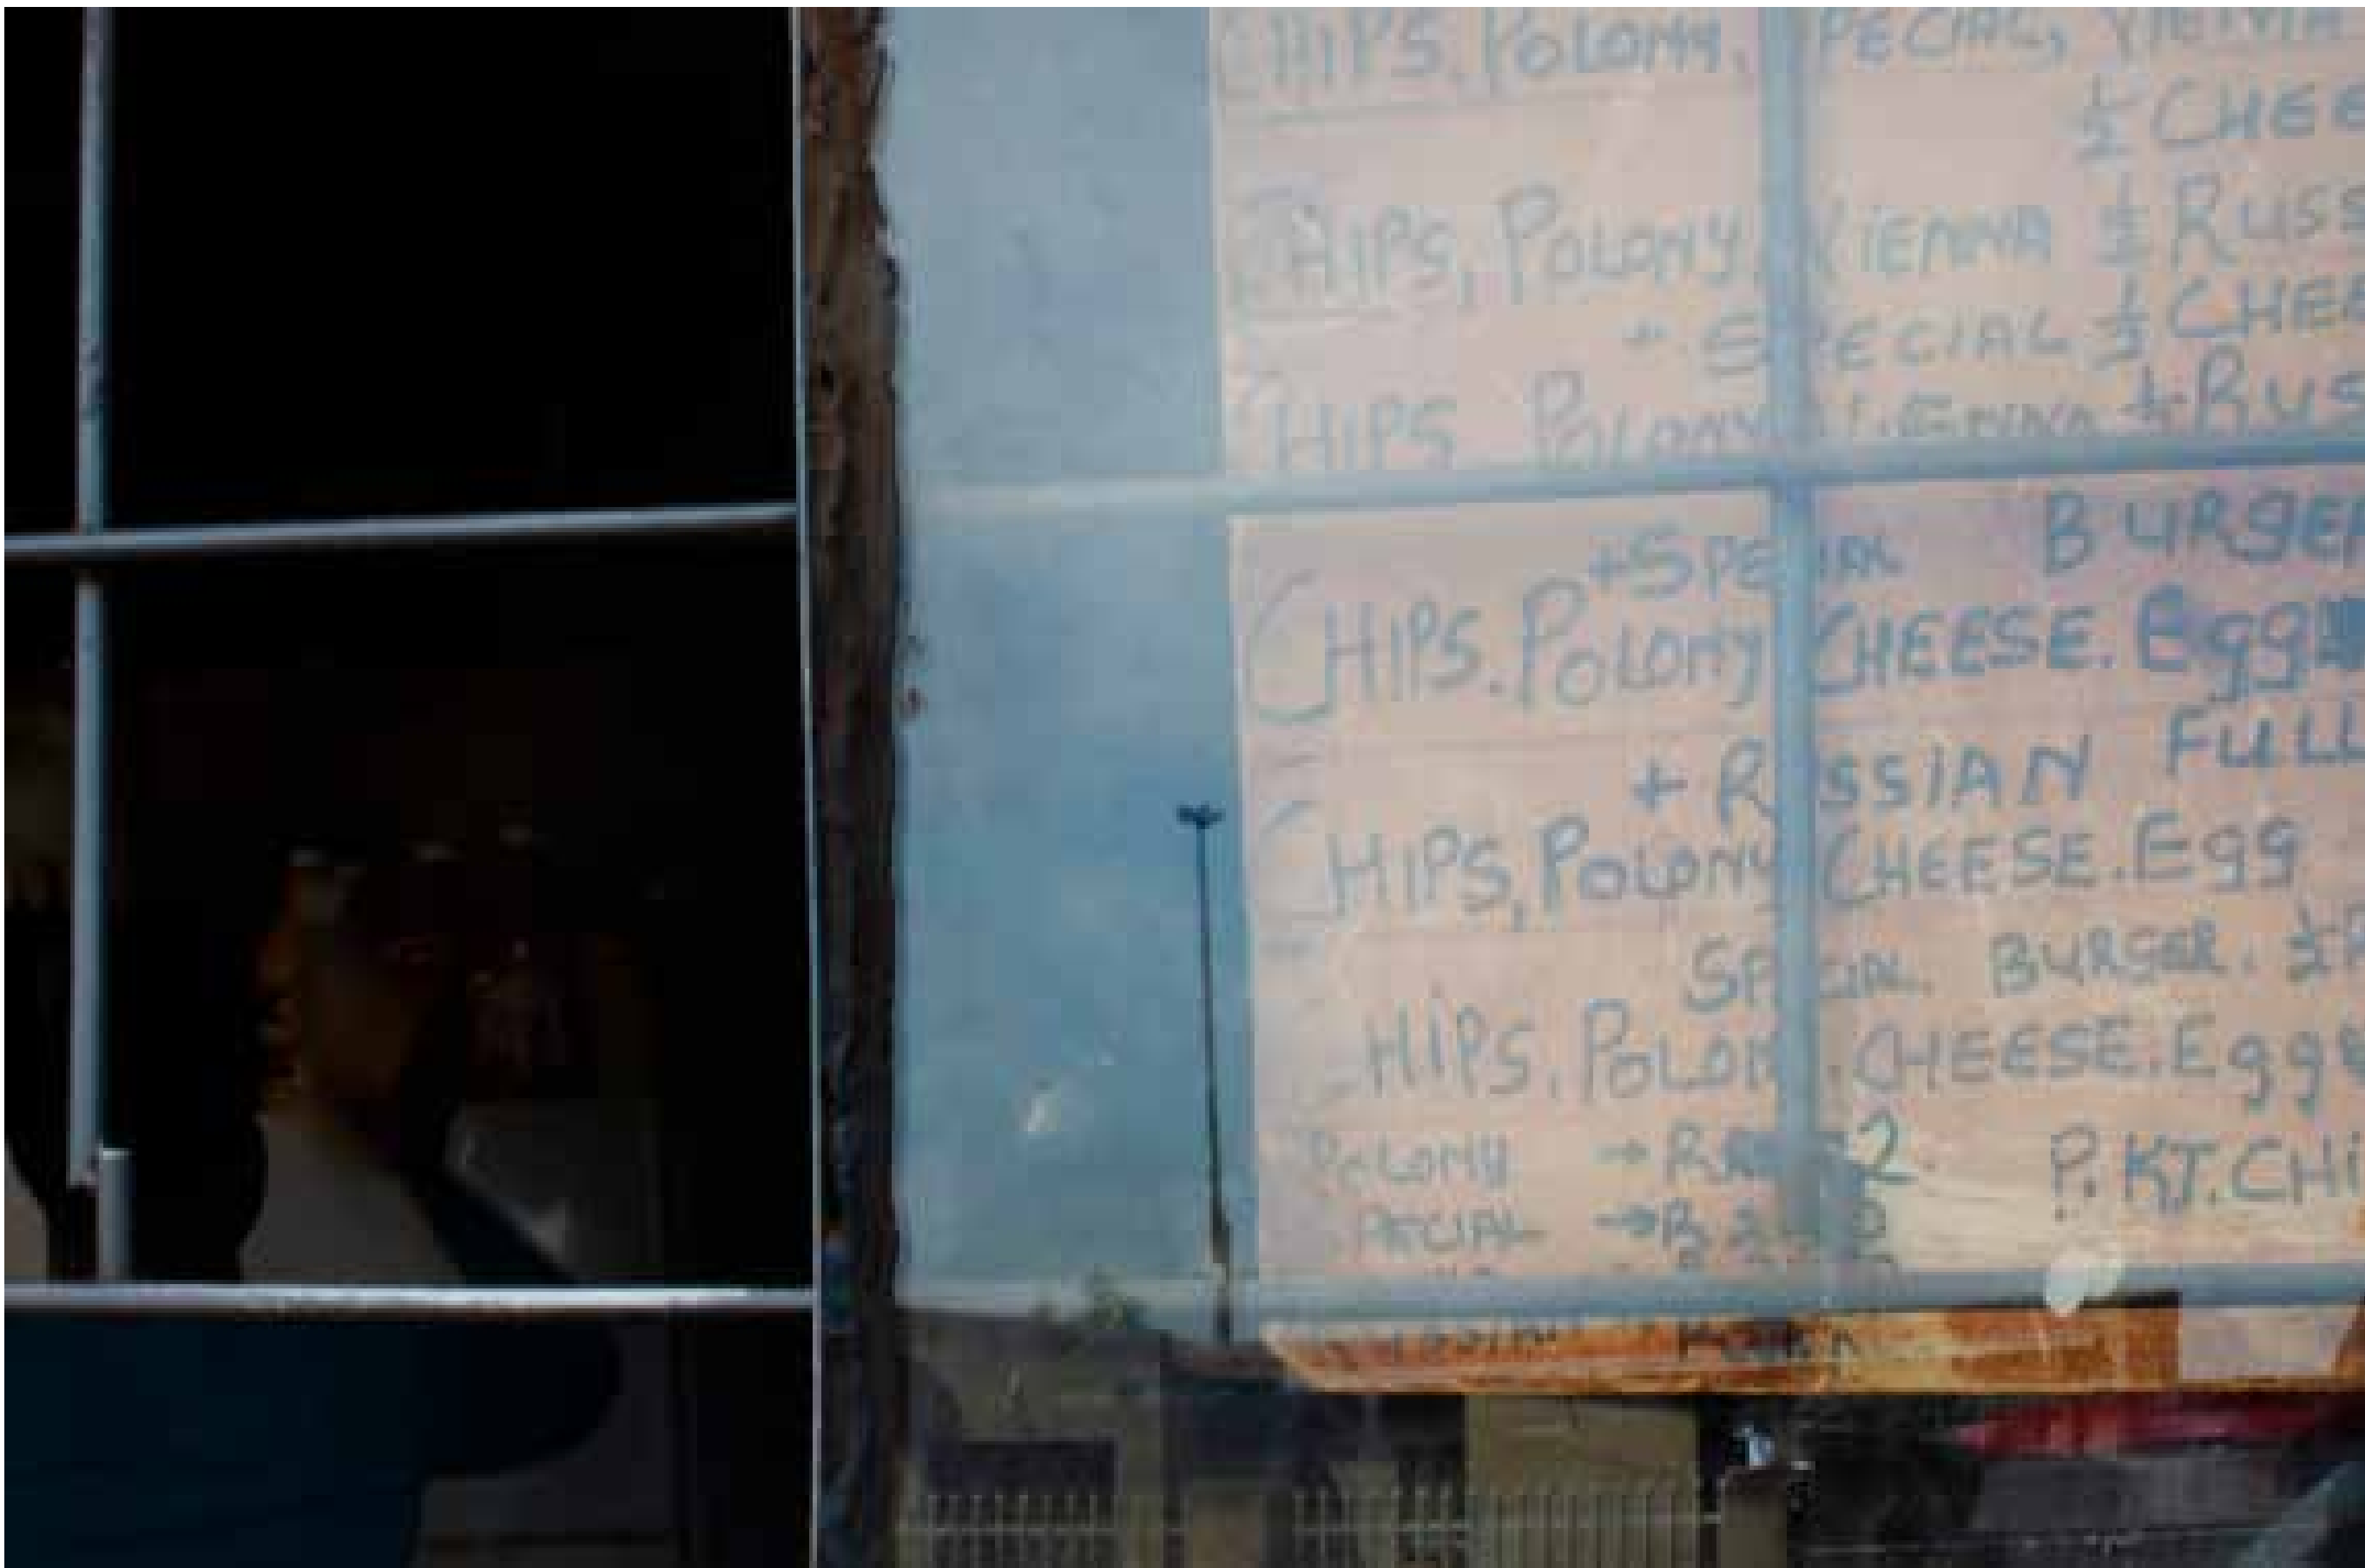 CHIPS, POLONY, SPECIAL, VIENNA
½ CHEE
CHIPS, POLONY VIENNA ½ RUSS
+ SPECIAL ½ CHEE
CHIPS POLONY VIENNA ½ RUS
+ SPECIAL BURGER
CHIPS. POLONY CHEESE. Egg
+ RUSSIAN FULL
CHIPS, POLONY CHEESE. Egg
SPECIAL BURGER. ½ R
CHIPS. POLONY. CHEESE. Egg
POLONY → P. KT. CHI